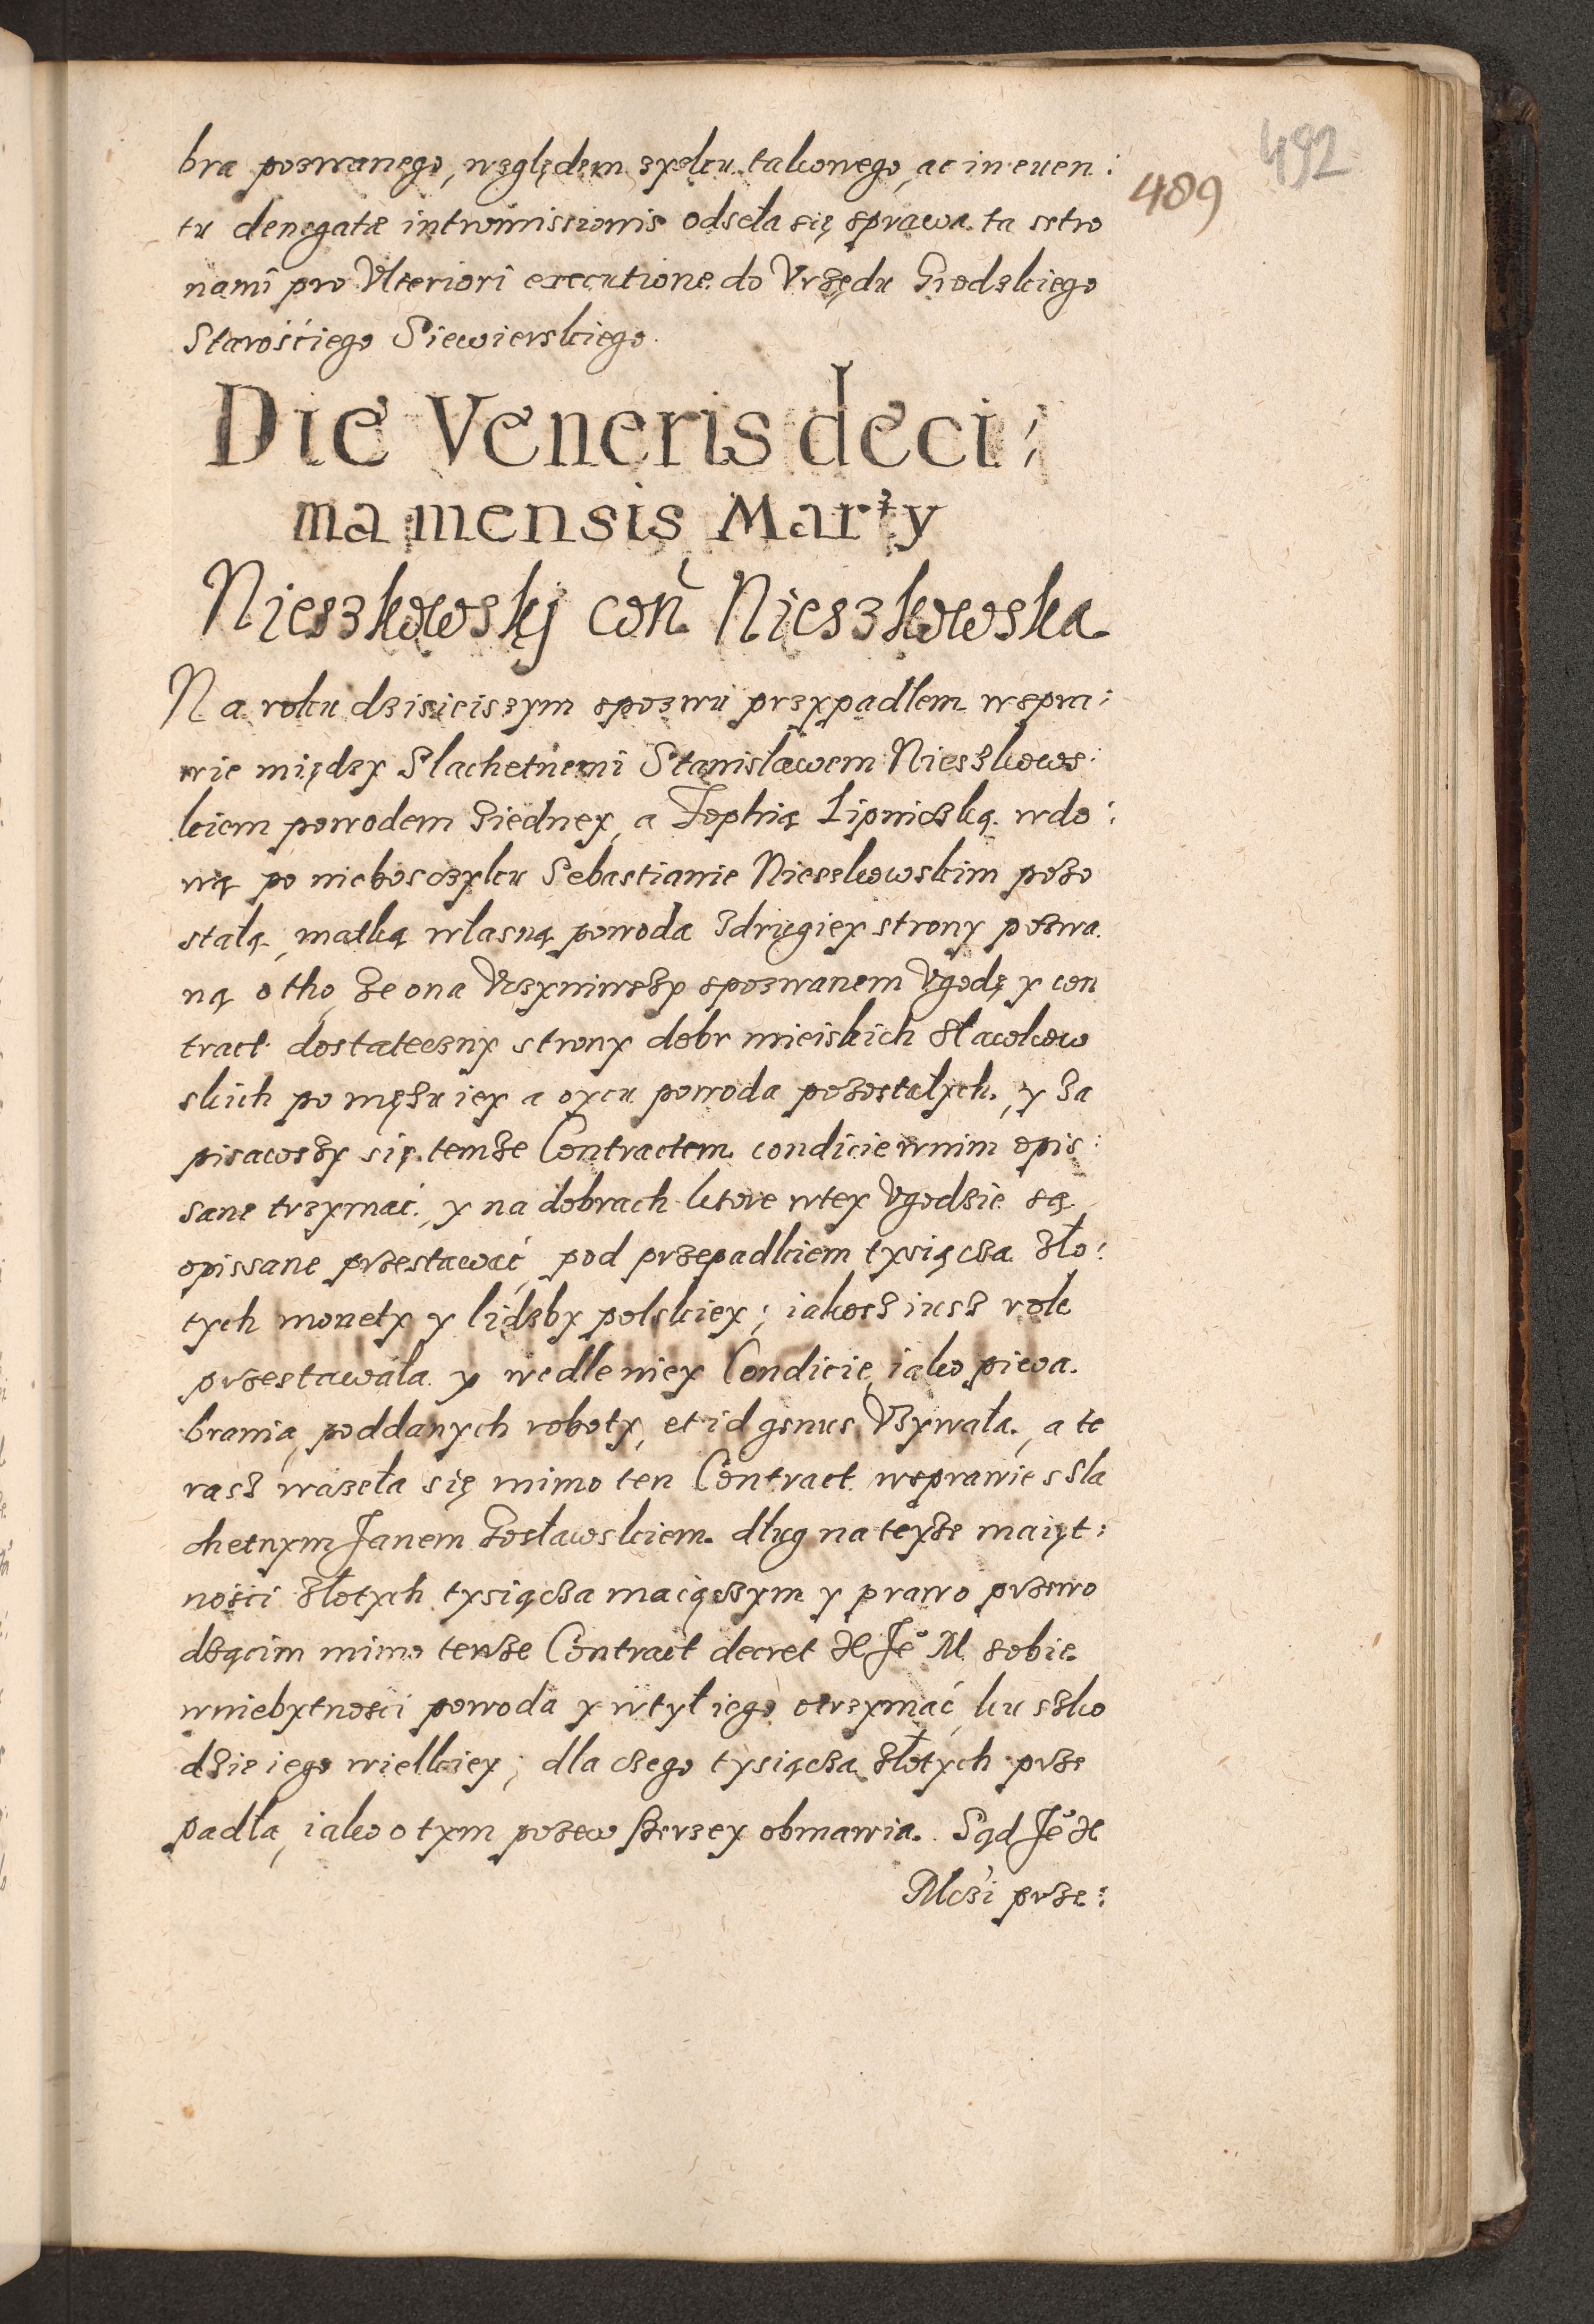 492
489
bra pozwanego, względem zysku takowego, ac in euen:
tu denegatæ intromissionis odseła się sprawa ta sstro
nami pro Vlteriori executione do Vrzędu Grodzkiego
Starościego Siewierskiego.
Die Veneris deci:
ma mensis Marty
Nieszkowskj con Nieszkowska
Na roku dzisieiszym spozwu przypadłem wspra:
wie między Slachetnemi Stanisławem Nieszkows:
kiem powodem ziedney, a Zophią Lipniczką wdo:
wą po nieboszczyku Sebastianie Nieszkowskim pozo
stałą, matką własną powoda zdrugiey strony pozwa
ną otho że ona Vczyniwszy spozwanem Vgodę y con
tract dostateczny strony dobr mieiskich Sławkow
skich po mężu iey a oycu powoda pozostałych, y za
pisawszy się temże Contractem condicie wnim opis:
sane trzymać, y na dobrach ktore wtey Vgodzie są
opissane przestawać, pod przepadkiem tysiącza zło:
tych monety y lidzby polskiey; iakosz iusz rok
przestawała y wedle niey Condicie, iako piwa
brania, poddanych roboty, et id genus Vżywała, a te
rasz wazeła się mimo ten Contract wsprawie s Sla
chetnym Janem Gosławskiem dług na teyże maięt:
ności złotych tysiącza maiączym y prawo przewo
dzącim mimo tenże Contract decret X Je° M sobie
wniebytności powoda y wtył iego otrzymać, ku szko
dzie iego wielkiey; dla czego tysiącza złotych prze
padła, iako o tym pozew szerzey obmawia. Sąd Je° X
Mczi prze: